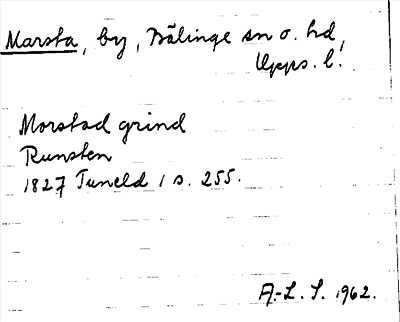 Marsta, by, Bälinge sn o. hd,
Upps. l.
Morstad grind
Runsten
1827 Tuneld 1 s. 255.
A.-L. S. 1962.